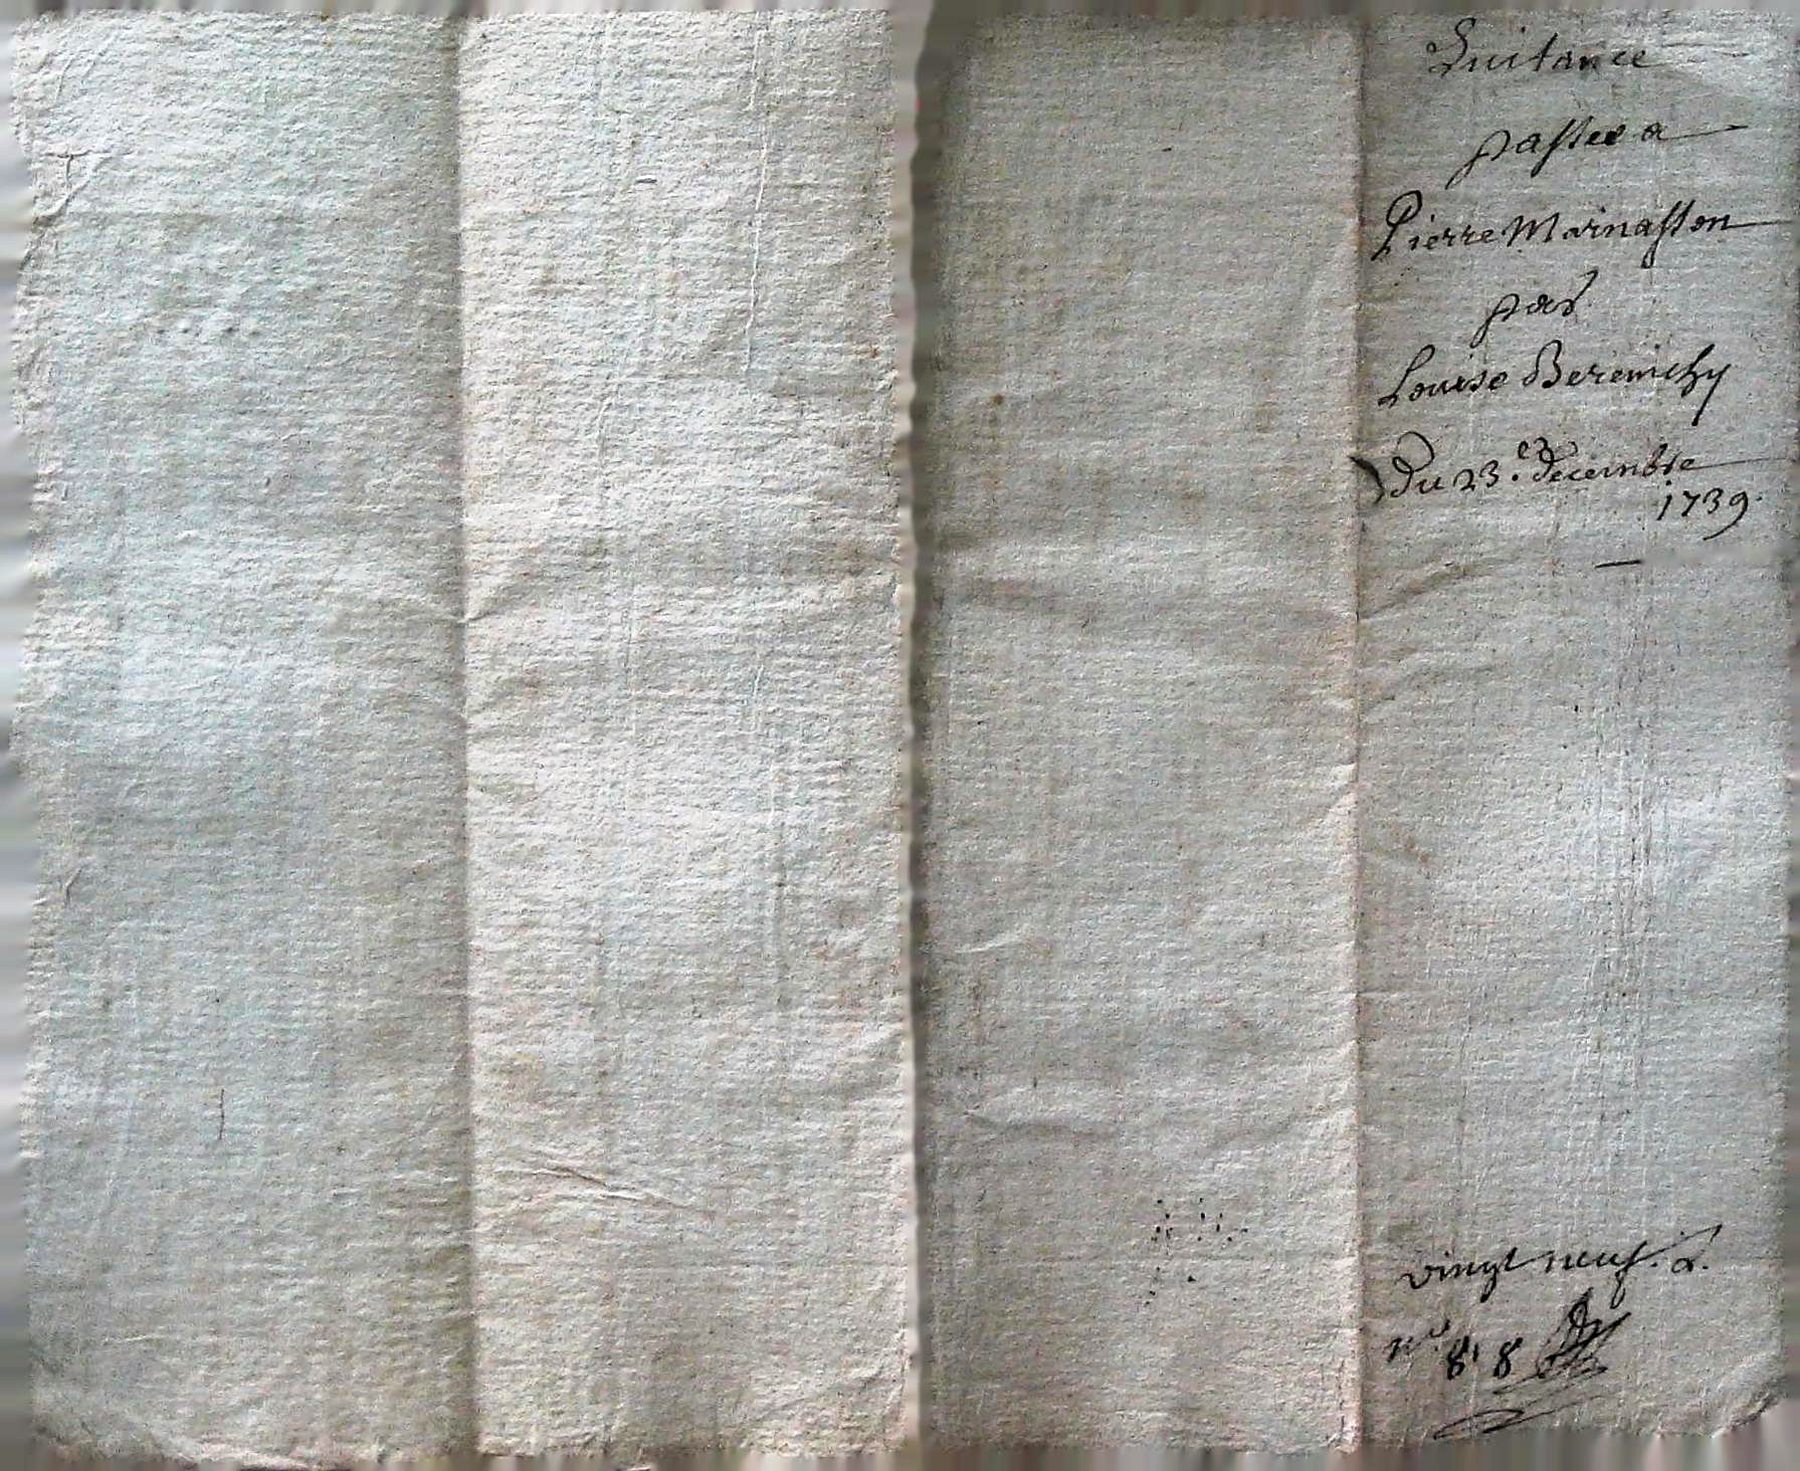 Quitance
passee a
Pierre Marnasson
par
Louise Beremchy
du 23.e decembre
1739.
vingt neuf. &.
no. 8' 8